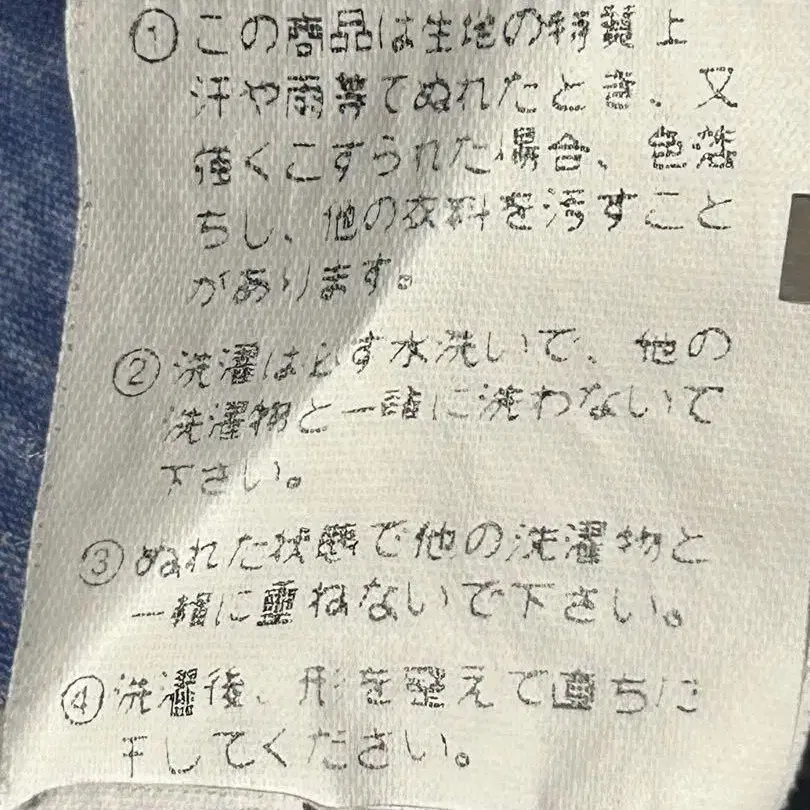 ①この商品は生地の特性上
汗や雨等でぬれたとき、又
強くこすられた場合、色落
ちし、他の衣料を汚すこと
があります。
②洗濯は必ず水洗いで、他の
洗濯物と一諸に洗わないで
下さい。
③ぬれた状態で他の洗濯物と
一緒に重ねないで下さい。
④洗濯後、形を整えて直ちに
干してください。